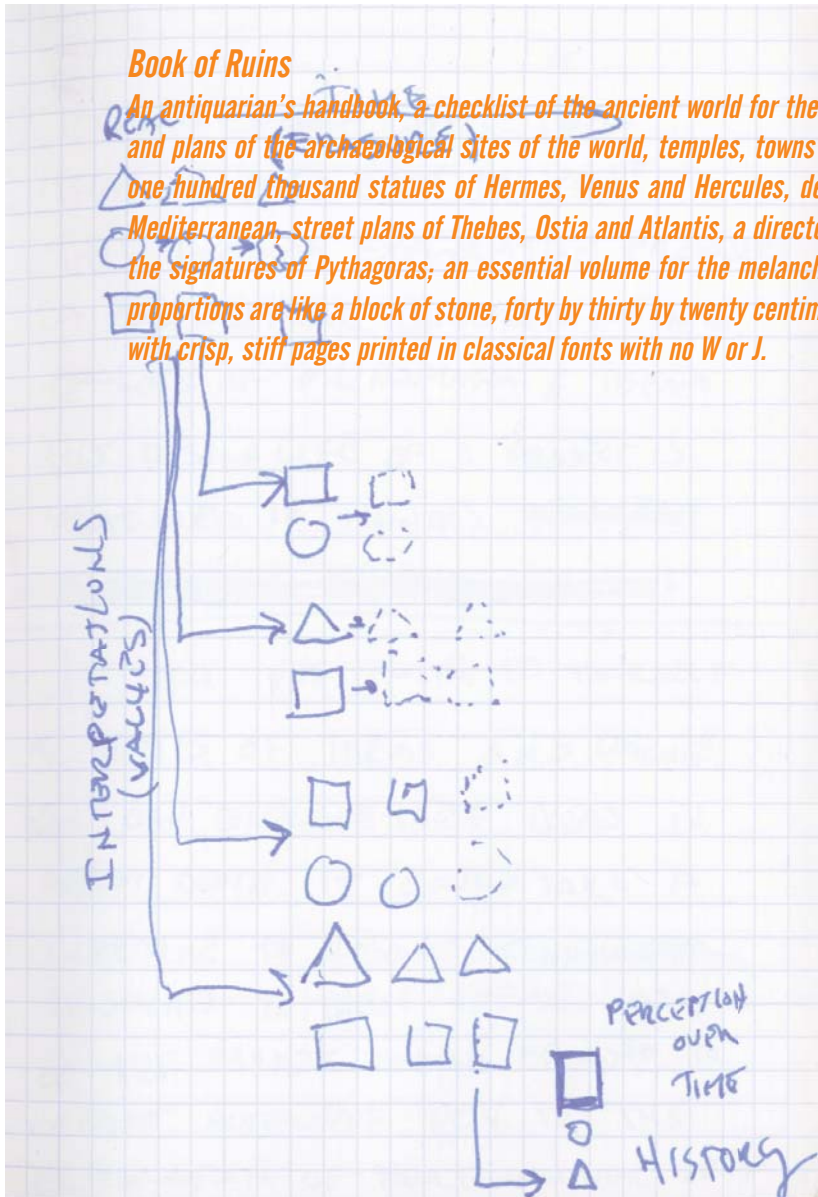 Book of Ruins
TIME
An antiquarian's handbook, a checklist of the ancient world for the
REAL
(ERASURE)
and plans of the archaeological sites of the world, temples, towns
one hundred thousand statues of Hermes, Venus and Hercules, de
Mediterranean, street plans of Thebes, Ostia and Atlantis, a directo
the signatures of Pythagoras; an essential volume for the melanch
proportions are like a block of stone, forty by thirty by twenty centim
with crisp, stiff pages printed in classical fonts with no W or J.
INTERPETATIONS
(VALUES)
PERCEPTION
OVER
TIME
HISTORY